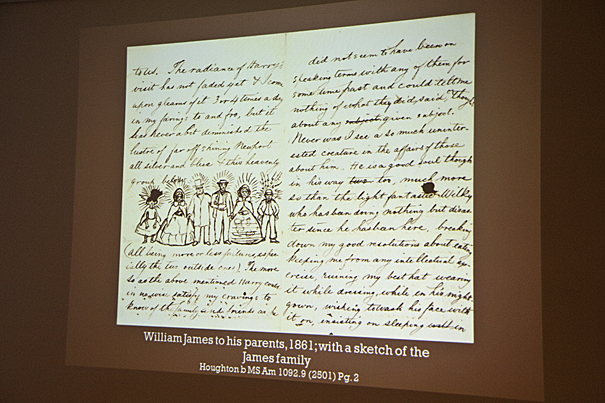 to us. The radiance of Harry's
visit has not faded yet & I come
upon gleams of it 3 or 4 times a day
in my farings to and fro, but it
has never a bit diminished the
lustre of far off shining Newport
all silver and blue & this heavenly
group below
(all being more or less failures, especially
the two outside ones). The more
so as the above mentioned Harry could
in no wise satisfy my cravings to
know of the family and friends as he
did not seem to have been on
speaking terms with any of them for
some time past and could tell me
nothing of what they did, said, or thought
about any subject given subject.
Never was I see a so much uninter-
ested creature in the affairs of those
about him. He is a good soul though
in his way two too, much more
so than the light fantastic Wilky
who has been doing nothing but disas-
ter since he has been here, breaking
down my good resolutions about eating
keeping me from any intellectual ex-
ercise, ruining my best hat wearing
it while dressing, while in his night-
gown, wishing to wash his face with
it on, insisting on sleeping
William James to his parents, 1861; with a sketch of the
James family
Houghton b MS Am 1092.9 (2501) Pg. 2